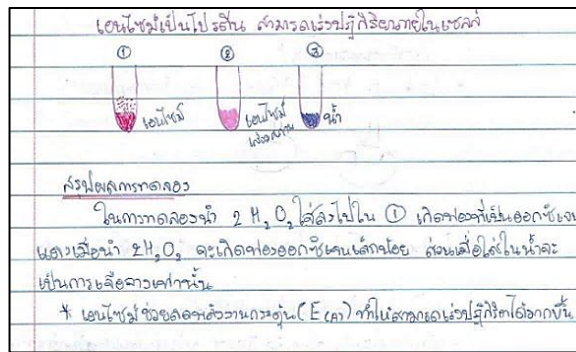 เอนไซม์เป็นโปรตีน สามารถเร่งปฏิกิริยาภายในเซลล์
① ② ③
เอนไซม์ เอนไซม์ น้ำ
สรุปผลการทดลอง
ในการทดลองนำ 2 H₂O₂ ใส่ลงไปใน ① เกิดฟองที่เป็นออกซิเจน
และเมื่อนำ 2H₂O₂ จะเกิดฟองออกซิเจนเล็กน้อย ส่วนเมื่อใส่ในน้ำจะ
เป็นการเจือจางเท่านั้น
* เอนไซม์ช่วยลดพลังงานกระตุ้น (E(A)) ทำให้สามารถเร่งปฏิกิริยาได้มากขึ้น